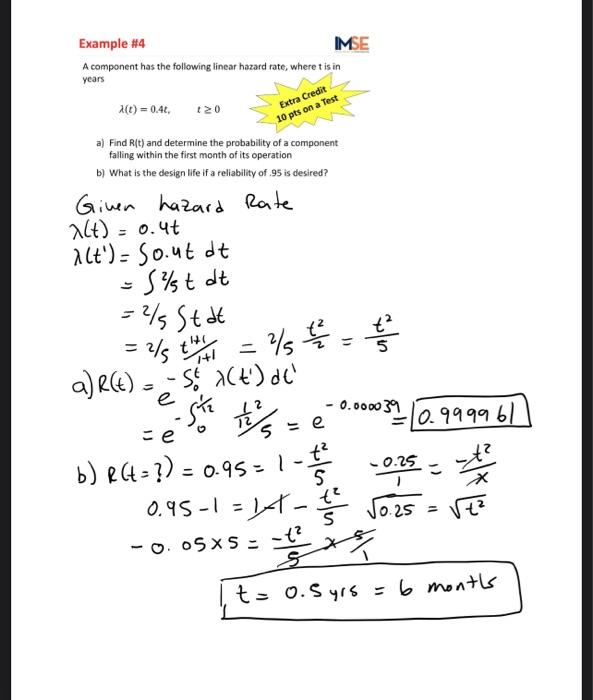 Example #4
IMSE
A component has the following linear hazard rate, where t is in
years
λ(t) = 0.4t, t ≥ 0
Extra Credit
10 pts on a Test
a) Find R(t) and determine the probability of a component
falling within the first month of its operation
b) What is the design life if a reliability of .95 is desired?
Given hazard Rate
λ(t) = 0.4t
λ(t') = ∫0.4t dt
= ∫ 2/5 t dt
= 2/5 ∫t dt
= 2/5 t^(1+1)/(1+1) = 2/5 t²/2 = t²/5
a) R(t) = e^(-∫₀ᵗ λ(t') dt')
= e^(-∫₀^(1/12) (1/12)²/5) = e^(-0.000039) = 0.999961
b) R(t=?) = 0.95 = 1 - t²/5
0.95 - 1 = 1-1 - t²/5
-0.05 x 5 = -t²/5 x 5/1
-0.25/1 = -t²/x
√0.25 = √t²
t = 0.5 yrs = 6 months